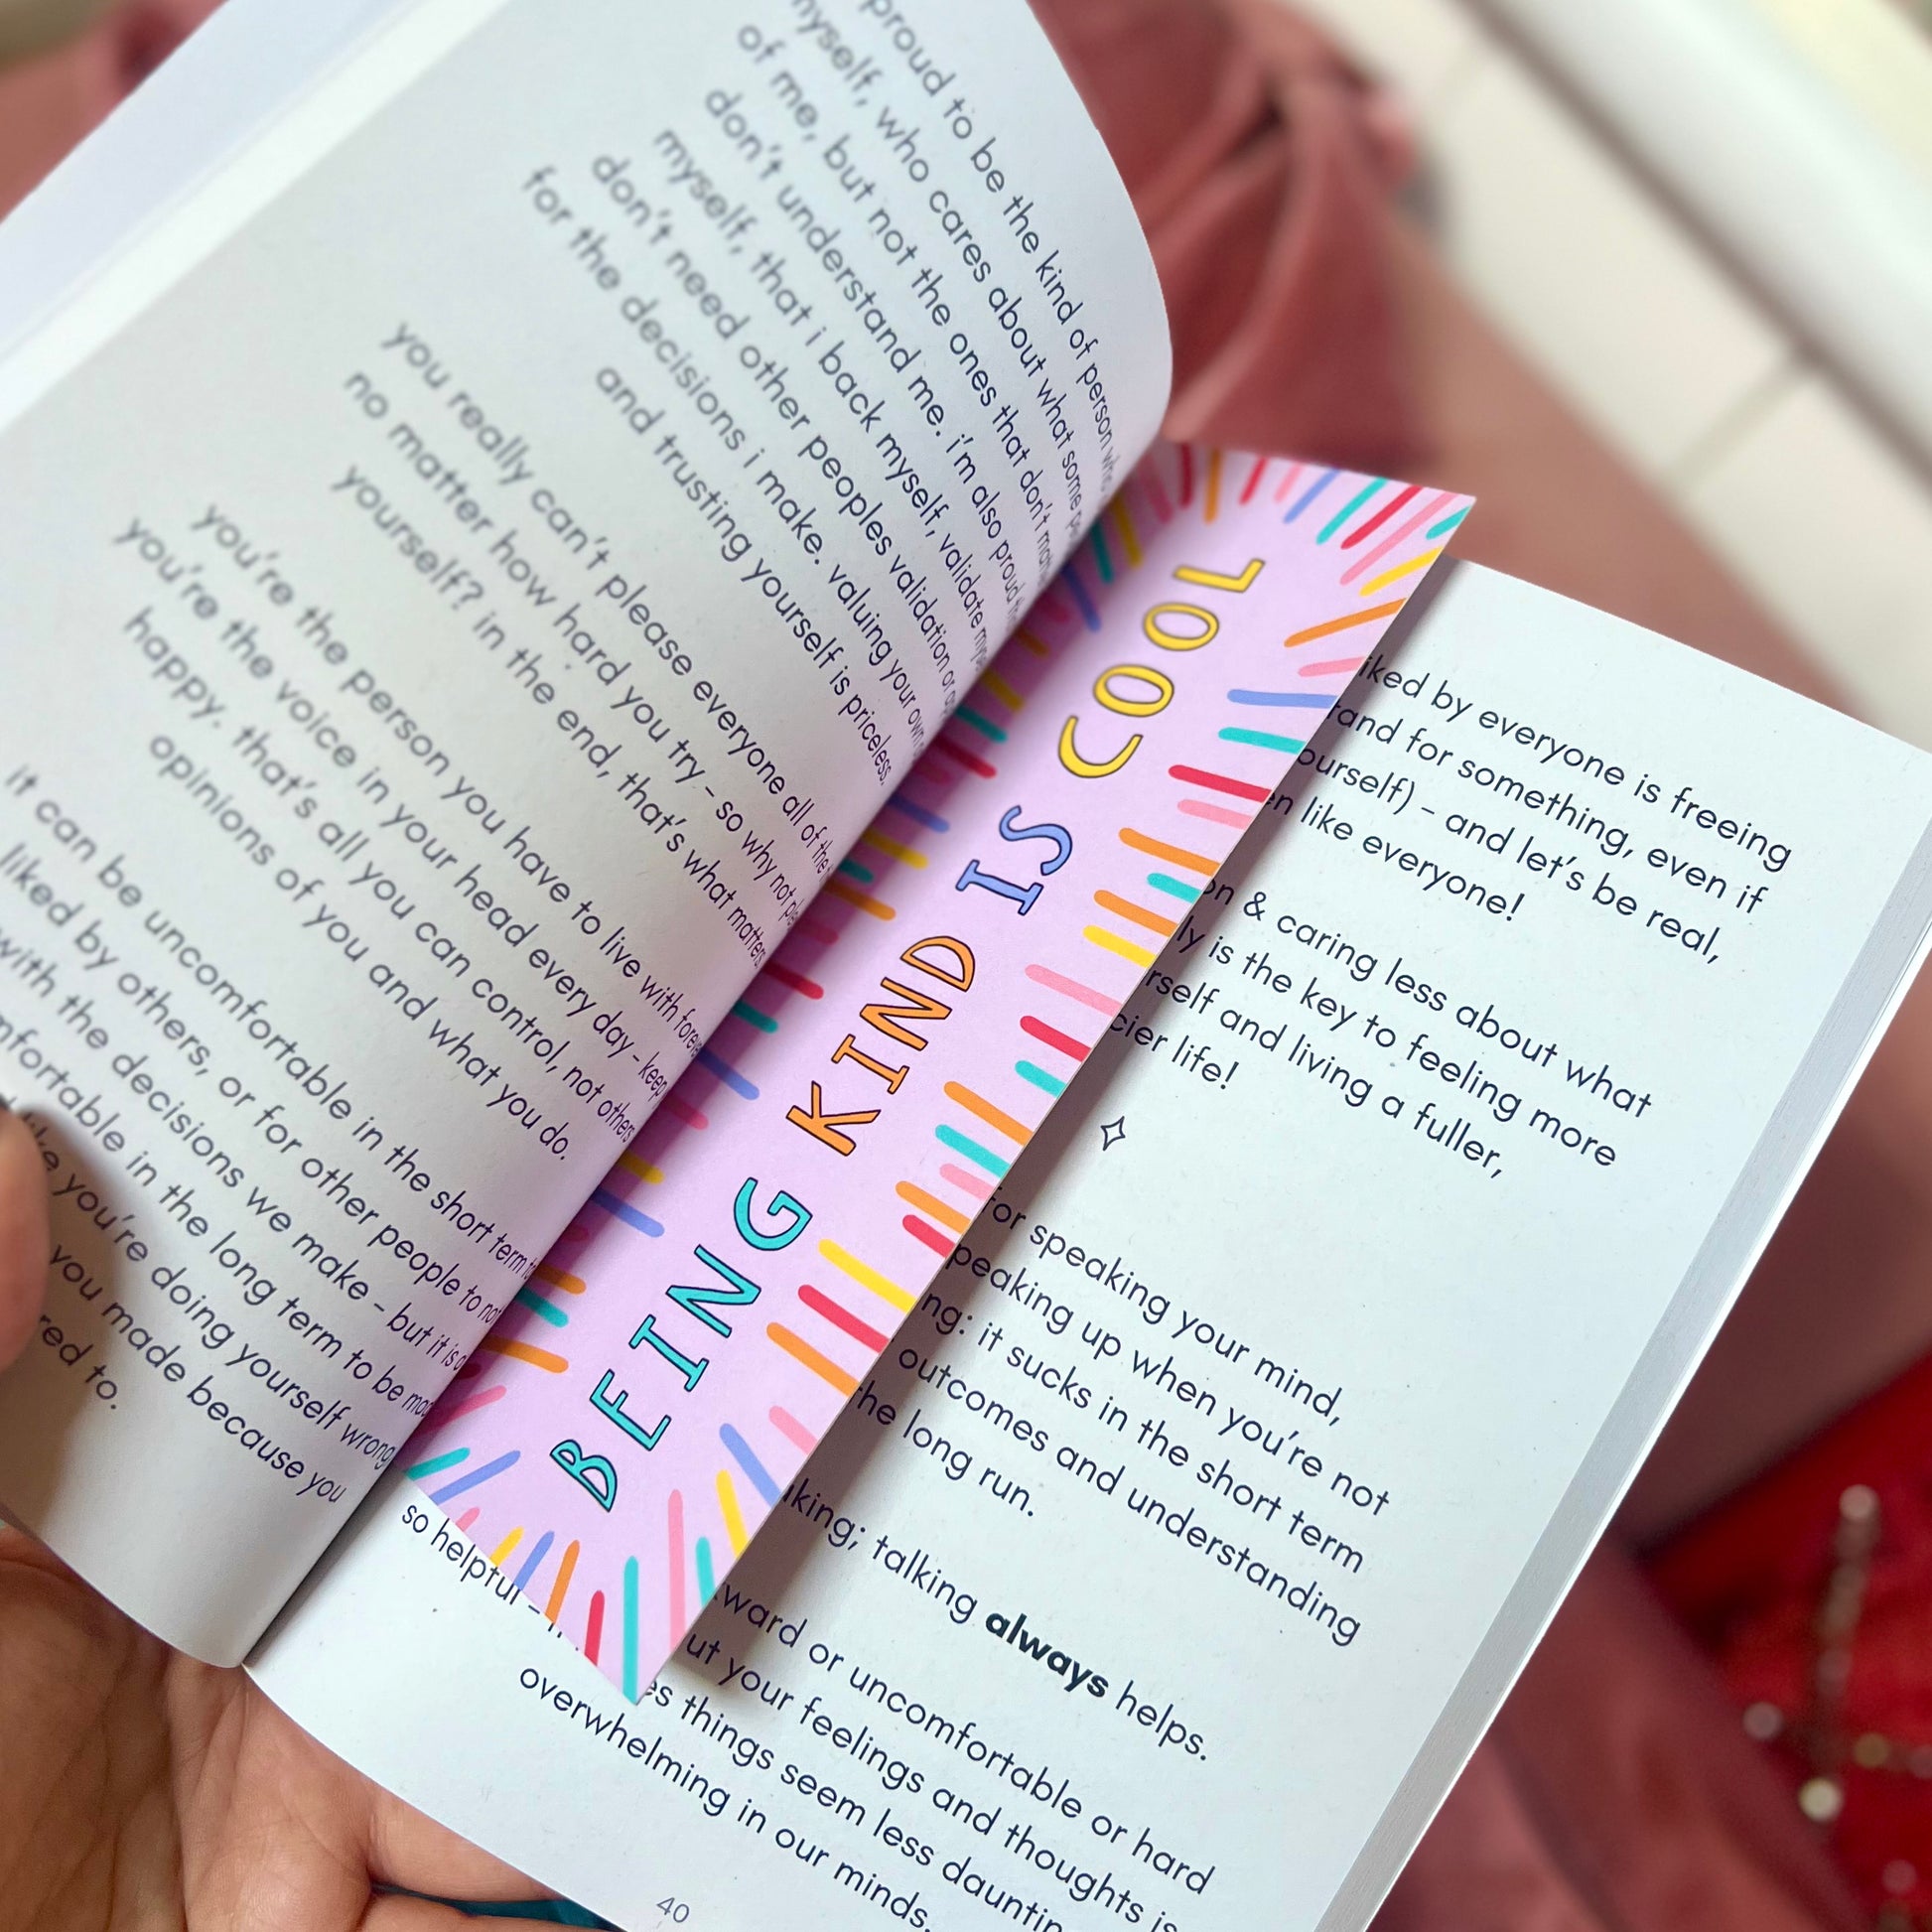 proud to be the kind of person who
myself, who cares about what some
of me, but not the ones that don't
don't understand me. i'm also proud
myself, that i back myself, validate
don't need other peoples validation or
for the decisions i make. valuing your own
and trusting yourself is priceless.
you really can't please everyone all of the
no matter how hard you try - so why not
yourself? in the end, that's what matters
you're the person you have to live with
you're the voice in your head every day - keep
happy. that's all you can control, not others
opinions of you and what you do.
it can be uncomfortable in the short term
liked by others, or for other people to not
with the decisions we make - but it is
in the long term to be
you're doing yourself wrong
you made because you
to.
BEING KIND IS COOL
by everyone is freeing
for something, even if
- and let's be real,
like everyone!
& caring less about what
is the key to feeling more
and living a fuller,
life!
speaking your mind,
up when you're not
it sucks in the short term
outcomes and understanding
the long run.
talking always helps.
or uncomfortable or hard
your feelings and thoughts is
so helpful -
things seem less
overwhelming in our minds.
40